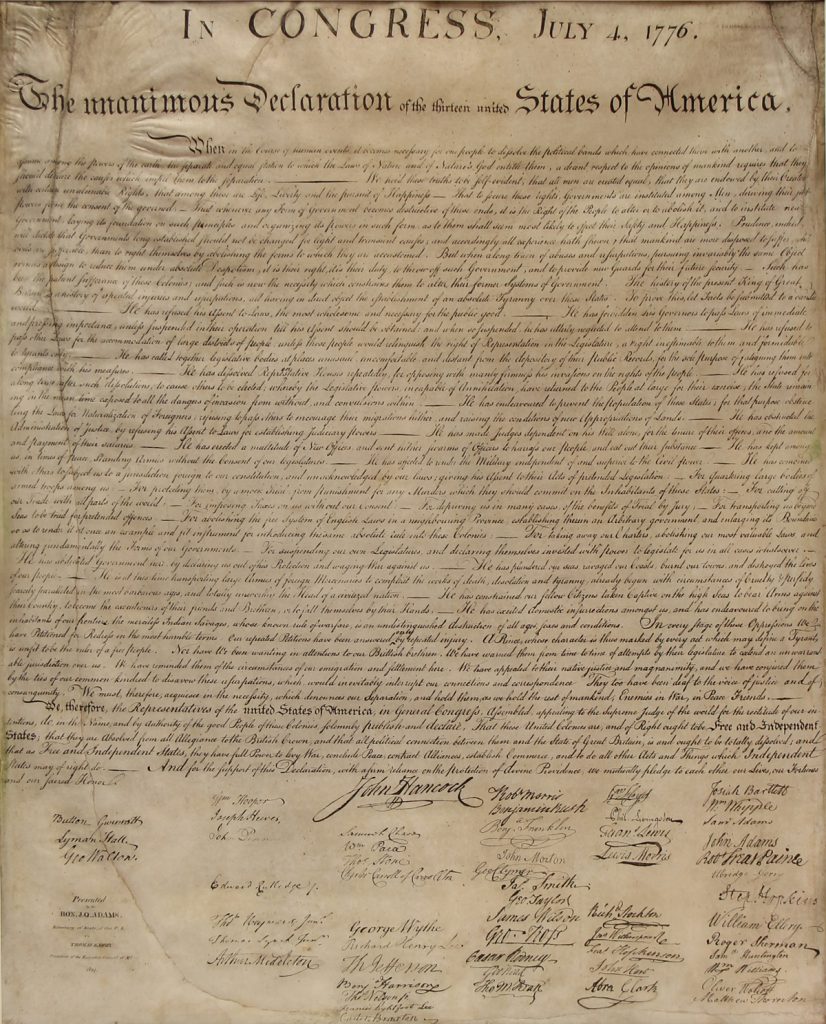 In CONGRESS, July 4, 1776.
The unanimous Declaration of the thirteen united States of America,
When in the Course of human events, it becomes necessary for one people to dissolve the political bands which have connected them with another, and to
assume among the powers of the earth, the separate and equal station to which the Laws of Nature and of Nature's God entitle them, a decent respect to the opinions of mankind requires that they
should declare the causes which impel them to the separation. — We hold these truths to be self-evident, that all men are created equal, that they are endowed by their Creator
with certain unalienable Rights, that among these are Life, Liberty and the pursuit of Happiness — That to secure these rights, Governments are instituted among Men, deriving their just
powers from the consent of the governed, — That whenever any Form of Government becomes destructive of these ends, it is the Right of the People to alter or to abolish it, and to institute new
Government, laying its foundation on such principles and organizing its powers in such form, as to them shall seem most likely to effect their Safety and Happiness. Prudence, indeed,
will dictate that Governments long established should not be changed for light and transient causes; and accordingly all experience hath shewn, that mankind are more disposed to suffer, while
evils are sufferable, than to right themselves by abolishing the forms to which they are accustomed. But when a long train of abuses and usurpations, pursuing invariably the same Object
evinces a design to reduce them under absolute Despotism, it is their right, it is their duty, to throw off such Government, and to provide new Guards for their future security. — Such has
been the patient sufferance of these Colonies; and such is now the necessity which constrains them to alter their former Systems of Government. The history of the present King of Great
Britain is a history of repeated injuries and usurpations, all having in direct object the establishment of an absolute Tyranny over these States. To prove this, let Facts be submitted to a candid
world. — He has refused his Assent to Laws, the most wholesome and necessary for the public good. — He has forbidden his Governors to pass Laws of immediate
and pressing importance, unless suspended in their operation till his Assent should be obtained; and when so suspended, he has utterly neglected to attend to them. — He has refused to
pass other Laws for the accommodation of large districts of people, unless those people would relinquish the right of Representation in the Legislature, a right inestimable to them and formidable
to tyrants only. — He has called together legislative bodies at places unusual, uncomfortable, and distant from the depository of their Public Records, for the sole purpose of fatiguing them into
compliance with his measures. — He has dissolved Representative Houses repeatedly, for opposing with manly firmness his invasions on the rights of the people. — He has refused for
a long time, after such dissolutions, to cause others to be elected; whereby the Legislative powers, incapable of Annihilation, have returned to the People at large for their exercise; the State remain-
ing in the mean time exposed to all the dangers of invasion from without, and convulsions within. — He has endeavoured to prevent the population of these States; for that purpose obstruc-
ting the Laws for Naturalization of Foreigners; refusing to pass others to encourage their migrations hither, and raising the conditions of new Appropriations of Lands. — He has obstructed the
Administration of Justice, by refusing his Assent to Laws for establishing Judiciary powers. — He has made Judges dependent on his Will alone, for the tenure of their offices, and the amount
and payment of their salaries. — He has erected a multitude of New Offices, and sent hither swarms of Officers to harrass our people, and eat out their substance. — He has kept among
us, in times of peace, Standing Armies without the Consent of our legislatures. — He has affected to render the Military independent of and superior to the Civil power. — He has combined
with others to subject us to a jurisdiction foreign to our constitution, and unacknowledged by our laws; giving his Assent to their Acts of pretended Legislation: — For Quartering large bodies of
armed troops among us: — For protecting them, by a mock Trial, from punishment for any Murders which they should commit on the Inhabitants of these States: — For cutting off
our Trade with all parts of the world: — For imposing Taxes on us without our Consent: — For depriving us in many cases, of the benefits of Trial by jury: — For transporting us beyond
Seas to be tried for pretended offences — For abolishing the free System of English Laws in a neighbouring Province, establishing therein an Arbitrary government, and enlarging its Boundaries
so as to render it at once an example and fit instrument for introducing the same absolute rule into these Colonies: — For taking away our Charters, abolishing our most valuable Laws, and
altering fundamentally the Forms of our Governments: — For suspending our own Legislatures, and declaring themselves invested with power to legislate for us in all cases whatsoever. —
He has abdicated Government here, by declaring us out of his Protection and waging War against us. — He has plundered our seas, ravaged our Coasts, burnt our towns, and destroyed the lives
of our people. — He is at this time transporting large Armies of foreign Mercenaries to compleat the works of death, desolation and tyranny, already begun with circumstances of Cruelty & perfidy
scarcely paralleled in the most barbarous ages, and totally unworthy the Head of a civilized nation. — He has constrained our fellow Citizens taken Captive on the high Seas to bear Arms against
their Country, to become the executioners of their friends and Brethren, or to fall themselves by their Hands. — He has excited domestic insurrections amongst us, and has endeavoured to bring on the
inhabitants of our frontiers, the merciless Indian Savages, whose known rule of warfare, is an undistinguished destruction of all ages, sexes and conditions. In every stage of these Oppressions We
have Petitioned for Redress in the most humble terms: Our repeated Petitions have been answered only by repeated injury. A Prince, whose character is thus marked by every act which may define a Tyrant,
is unfit to be the ruler of a free people. Nor have We been wanting in attentions to our Brittish brethren. We have warned them from time to time of attempts by their legislature to extend an unwarrant-
able jurisdiction over us. We have reminded them of the circumstances of our emigration and settlement here. We have appealed to their native justice and magnanimity, and we have conjured them
by the ties of our common kindred to disavow these usurpations, which, would inevitably interrupt our connections and correspondence. They too have been deaf to the voice of justice and of
consanguinity. We must, therefore, acquiesce in the necessity, which denounces our Separation, and hold them, as we hold the rest of mankind, Enemies in War, in Peace Friends. —
We, therefore, the Representatives of the united States of America, in General Congress, Assembled, appealing to the Supreme Judge of the world for the rectitude of our in-
tentions, do, in the Name, and by Authority of the good People of these Colonies, solemnly publish and declare, That these United Colonies are, and of Right ought to be Free and Independent
States; that they are Absolved from all Allegiance to the British Crown, and that all political connection between them and the State of Great Britain, is and ought to be totally dissolved; and
that as Free and Independent States, they have full Power to levy War, conclude Peace, contract Alliances, establish Commerce, and to do all other Acts and Things which Independent
States may of right do. — And for the support of this Declaration, with a firm reliance on the protection of divine Providence, we mutually pledge to each other our Lives, our Fortunes
and our sacred Honor.
Button Gwinnett
Lyman Hall
Geo Walton.
Wm Hooper
Joseph Hewes,
John Penn
Edward Rutledge /.
Thos Heyward Junr.
Thomas Lynch Junr.
Arthur Middleton
John Hancock
Samuel Chase
Wm Paca
Thos Stone
Charles Carroll of Carrollton
George Wythe
Richard Henry Lee
Th Jefferson
Benj Harrison
Thos Nelson jr.
Francis Lightfoot Lee
Carter Braxton
Robt Morris
Benjamin Rush
Benj. Franklin
John Morton
Geo Clymer
Jas. Smith
Geo. Taylor
James Wilson
Geo. Ross
Caesar Rodney
Geo Read
Tho M:Kean
Wm Floyd
Phil. Livingston
Frans. Lewis
Lewis Morris
Richd. Stockton
Jno Witherspoon
Fras. Hopkinson
John Hart
Abra Clark
Josiah Bartlett
Wm. Whipple
Saml Adams
John Adams
Robt Treat Paine
Elbridge Gerry
Step. Hopkins
William Ellery
Roger Sherman
Saml Huntington
Wm. Williams
Oliver Wolcott
Matthew Thornton
Presented
HON. J.Q. ADAMS,
Secretary of State of the U.S.